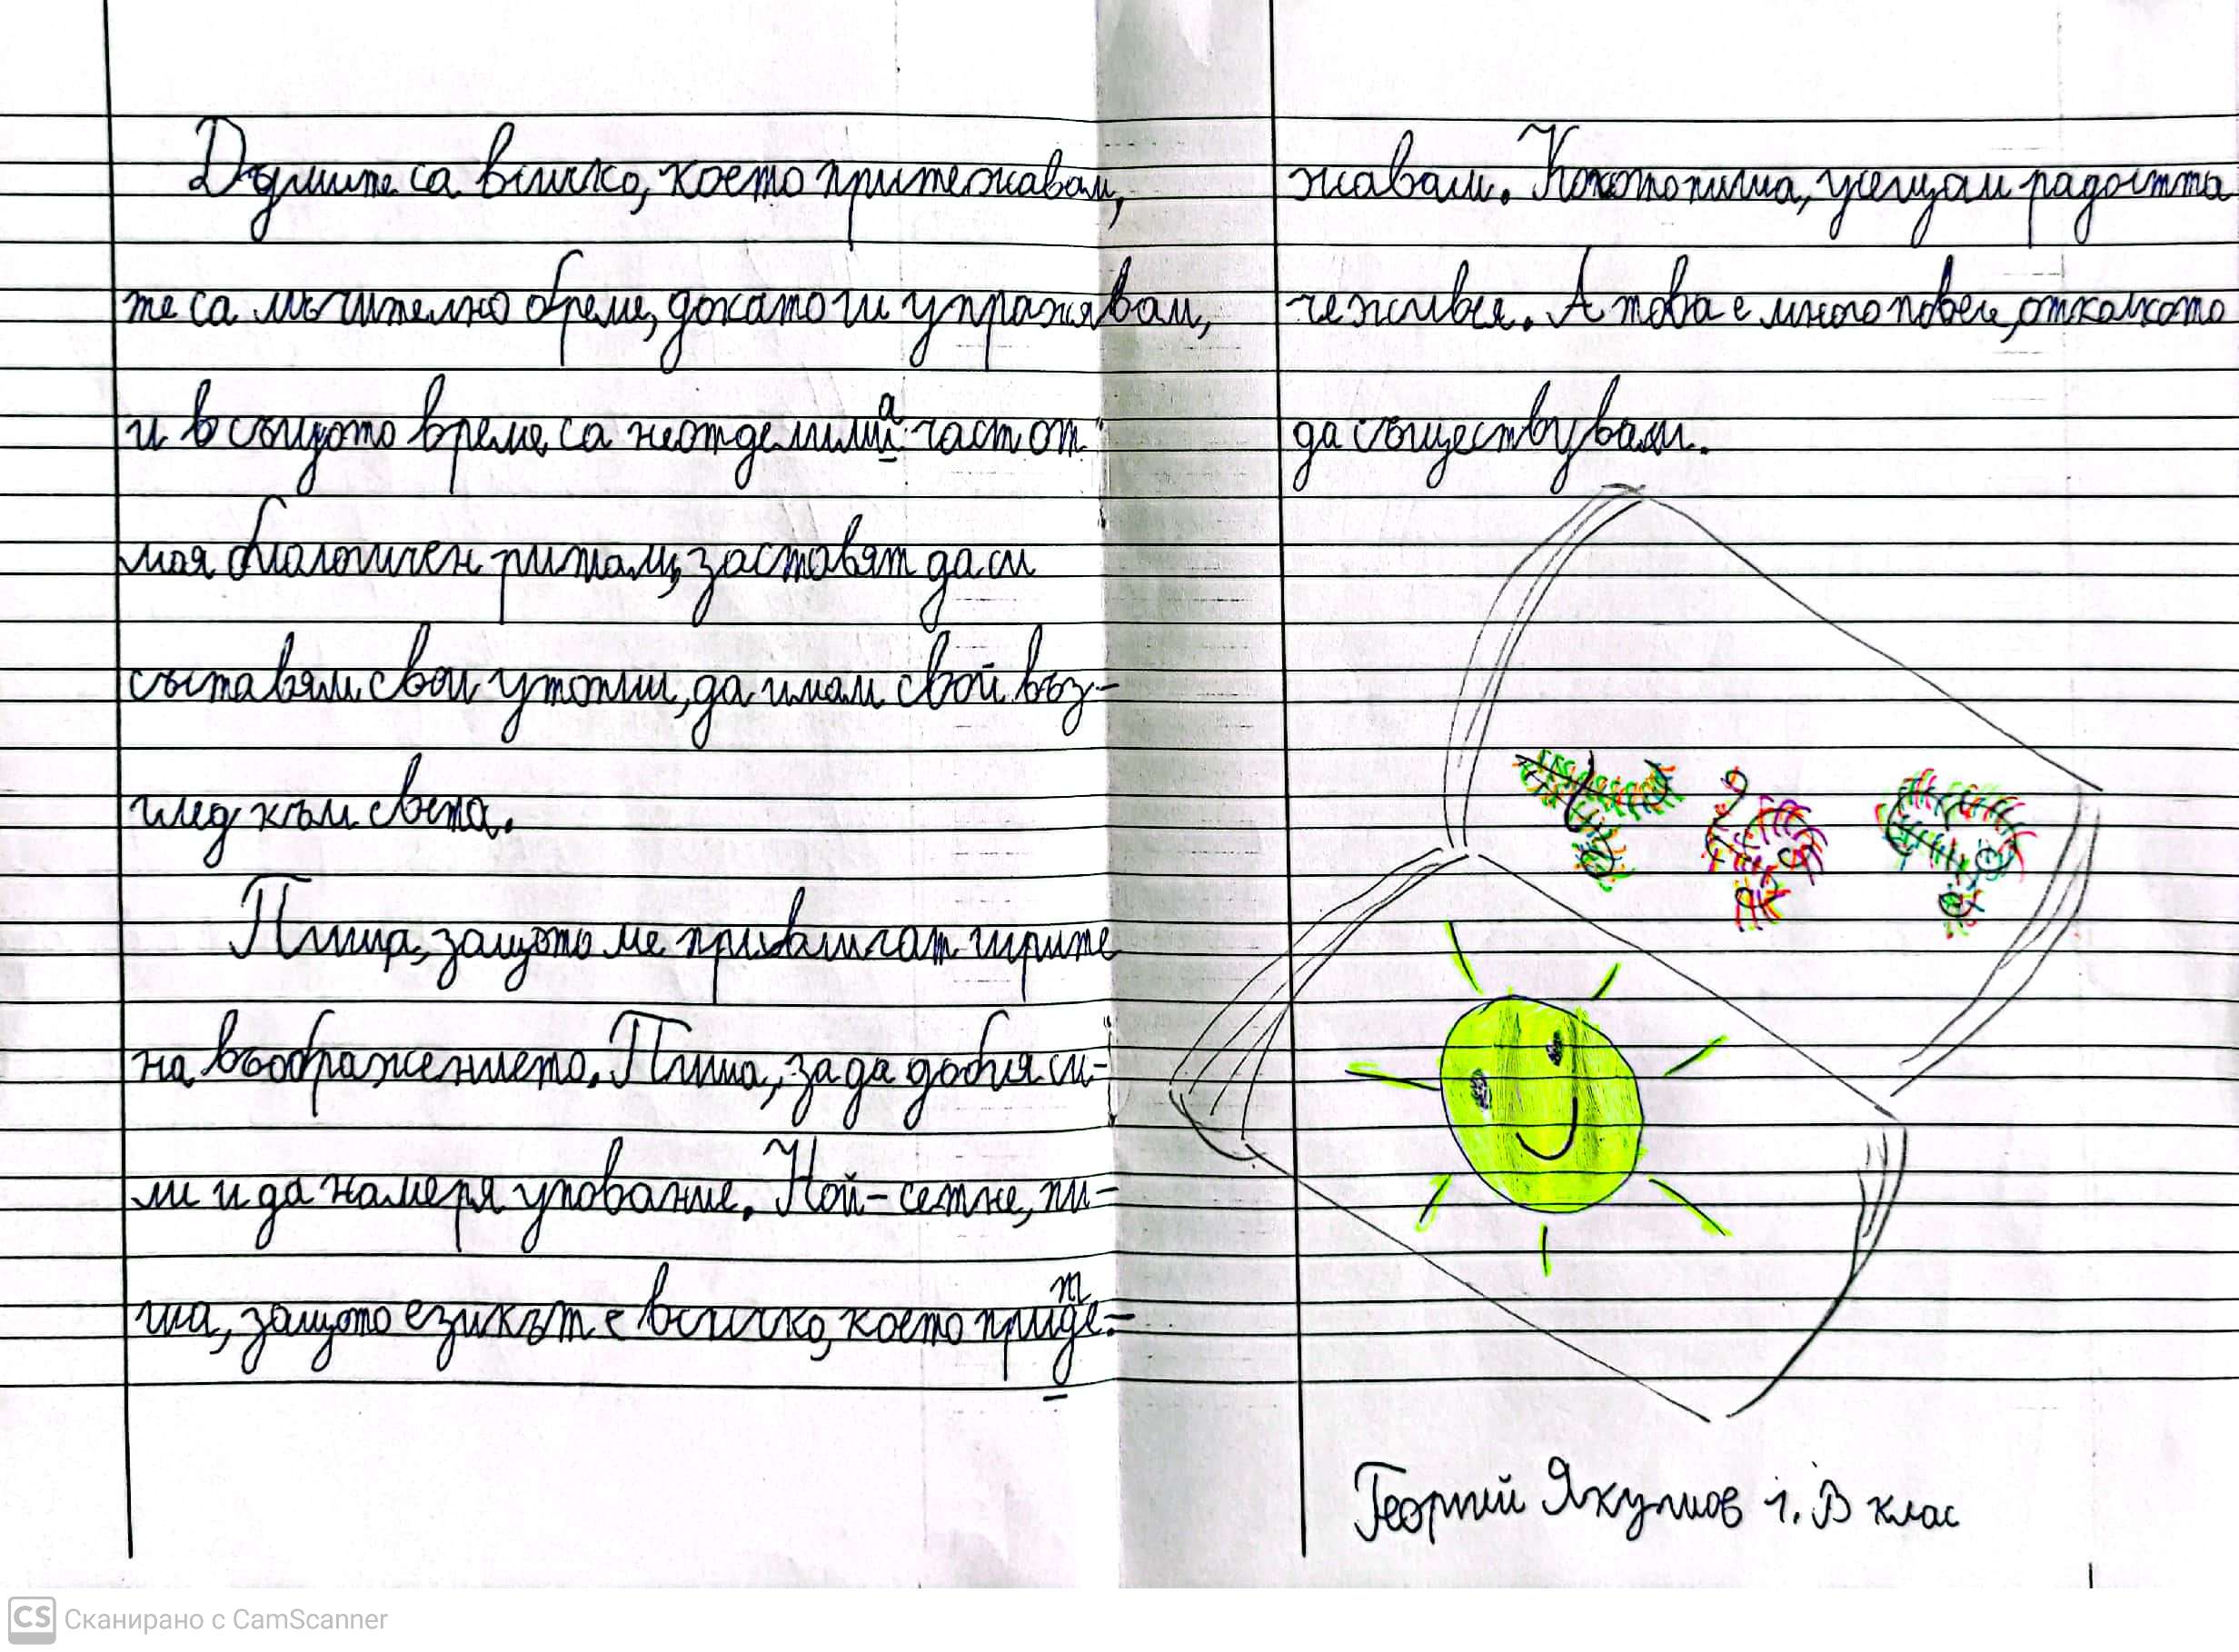 Думите са всичко, което притежавам,
те са мъчително бреме, докато ги упражявам,
и в същото време са неотделима част от
моя биологичен ритъм, заставят да си
съставям свои утопии, да имам свой въз-
глед към света.
Пиша, защото ме привличат игрите
на въображението. Пиша, за да добия си-
ли и да намеря упование. Най-сетне, пи-
ша, защото езикът е всичко, което прите-
жавам. Когато пиша, усещам радостта
че живея. А това е много повече, отколкото
да съществувам.
Георгий Якумов 1. В клас
CS Сканирано с CamScanner